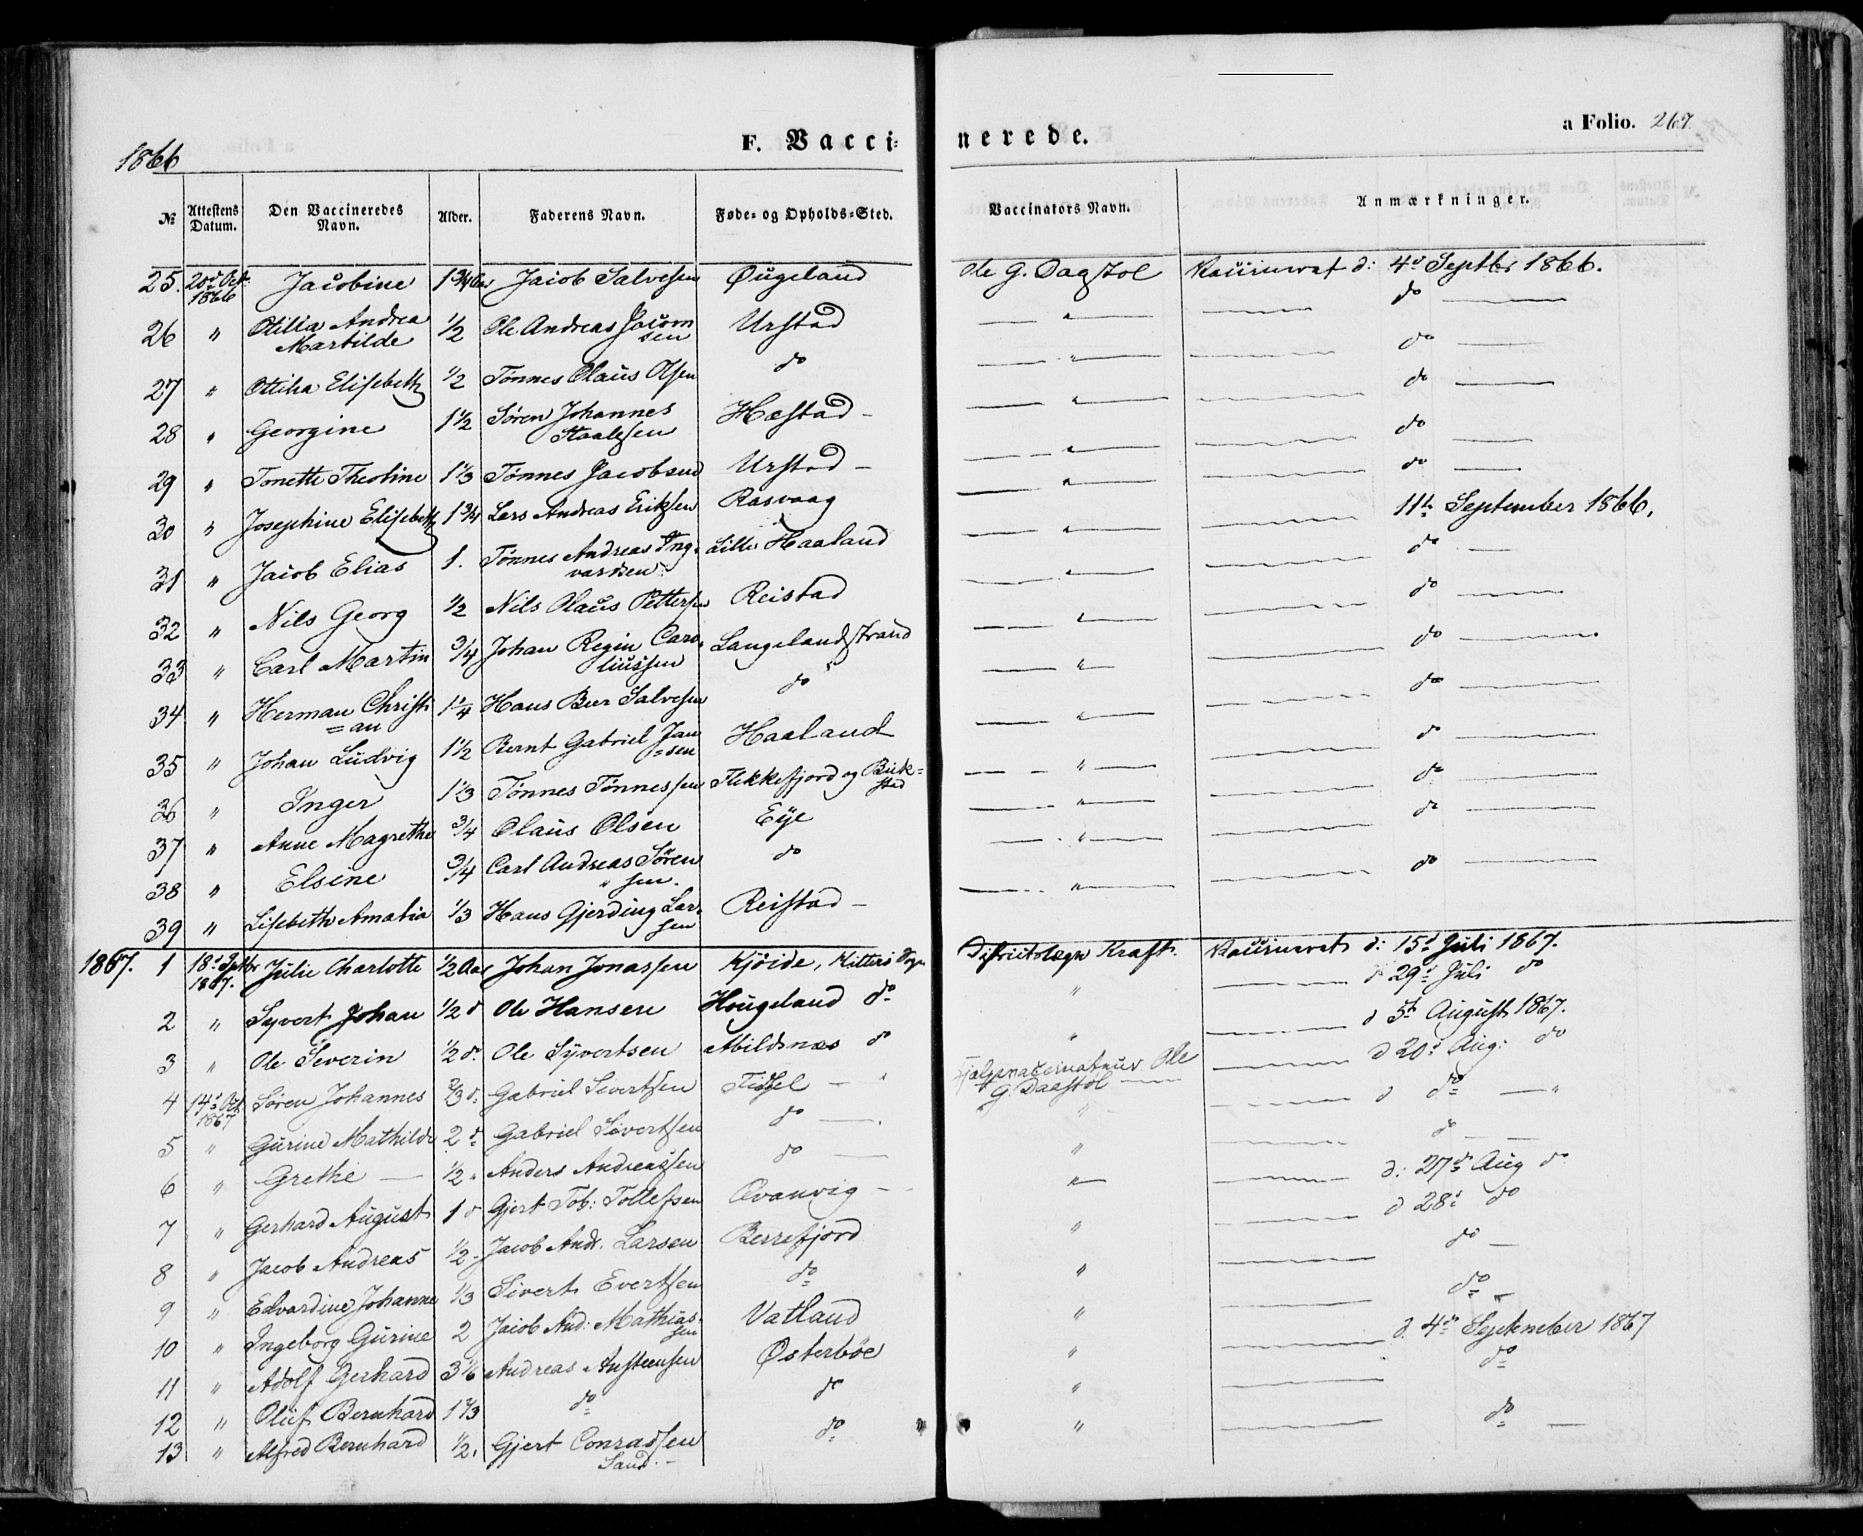 1866
F. Vacci-
nerede.
a Folio. 267
№ Attestens Datum. Den Vaccineredes Navn. Alder. Faderens Navn. Føde- og Opholds-Sted. Vaccinators Navn. Anmærkninger.
25. 20d Oct. 1866 Jacobine 1 3/4 Aar Jacob Salvesen Øugeland Ole G. Dagstol Vaccineret d: 4d Septbr 1866.
26 " Otilia Andrea Martilde 1/2 Ole Andreas Jacobsen Urstad " do
27 " Ottilia Elisebeth 1/2 Tønnes Olaus Olsen do " do
28 " Georgine 1 1/2 Søren Johannes Staalesen Hæstad " do
29 " Tonette Theoline 1 1/3 Tønnes Jacobsen Urstad " do
30 " Josephine Elisebeth 1 3/4 Lars Andreas Eriksen Rasvaag " do
31 " Jacob Elias 1. Tønnes Andreas Ingvardsen Lille Haaland " 11te September 1866.
32 " Nils Georg 1/2 Nils Olaus Pettersen Reistad " do
33 " Carl Martin 3/4 Johan Regin Caroliussen Langelandstrand " do
34 " Herman Christian 1 1/4 Hans Beer Salvesen do " do
35 " Johan Ludvig 1 1/2 Bernt Gabriel Jansen Haaland " do
36 " Inger 1 1/3 Tønnes Tønnessen Flekkefjord og Birkestad " do
37 " Anne Magrethe 3/4 Olaus Olsen Eye " do
38 " Elsine 3/4 Carl Andreas Sørensen do " do
39 " Lisebeth Amalia 1/3 Hans Gjerding Larsen Reistad " do
1867. 1 18d Septbr 1867. Julie Charlotte 1/2 Aar Johan Jonassen Kjöide, Hitterø Sogn Distriktslæge Kraft. Vaccineret d: 15d Juli 1867.
2 " Syvert Johan 1/2 d Ole Hansen Hougeland do " d 29d Juli do
3 " Ole Severin 1/2 do Ole Syvertsen Abildsnæs do " d 5te August 1867.
4 14d Oct 1867 Søren Johannes 2/3 d. Gabriel Sivertsen Tidsel " Hjælpevaccinateur Ole G. Daastøl d 20d Aug: do
5 " Gurine Mathilde 2 d Gabriel Sivertsen do " d do "
6 " Grethe 1/2 " Anders Andreassen do " do
7 " Gerhard August 1 d Gjert Tob: Tollefsen Qvanvig " d: 27d Aug do
8 " Jacob Andreas 1/2 Jacob Andr. Larsen Berrefjord " d 28d do
9 " Edvardine Johanne 1/3 Sivert Evertsen do " do
10 " Ingeborg Gurine 2 Jacob And: Mathiassen Vatland " do
11 " Adolf Gerhard 3 1/6 Andreas Ansteensen Østerbøe " d. 4de September 1867
12 " Oluf Bernhard 1 1/3 do do " do
13 " Alfred Bernhard 1/2. Gjert Conradsen Sand. do " do